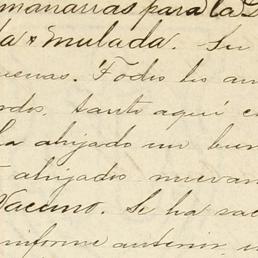 manarias para la
da * Mulada. Su
uenas. Todos los an
dos, tanto aquí c
la ahijado un buen
ahijados nuevam
Vacuno. Se ha sac
informe anterior, u